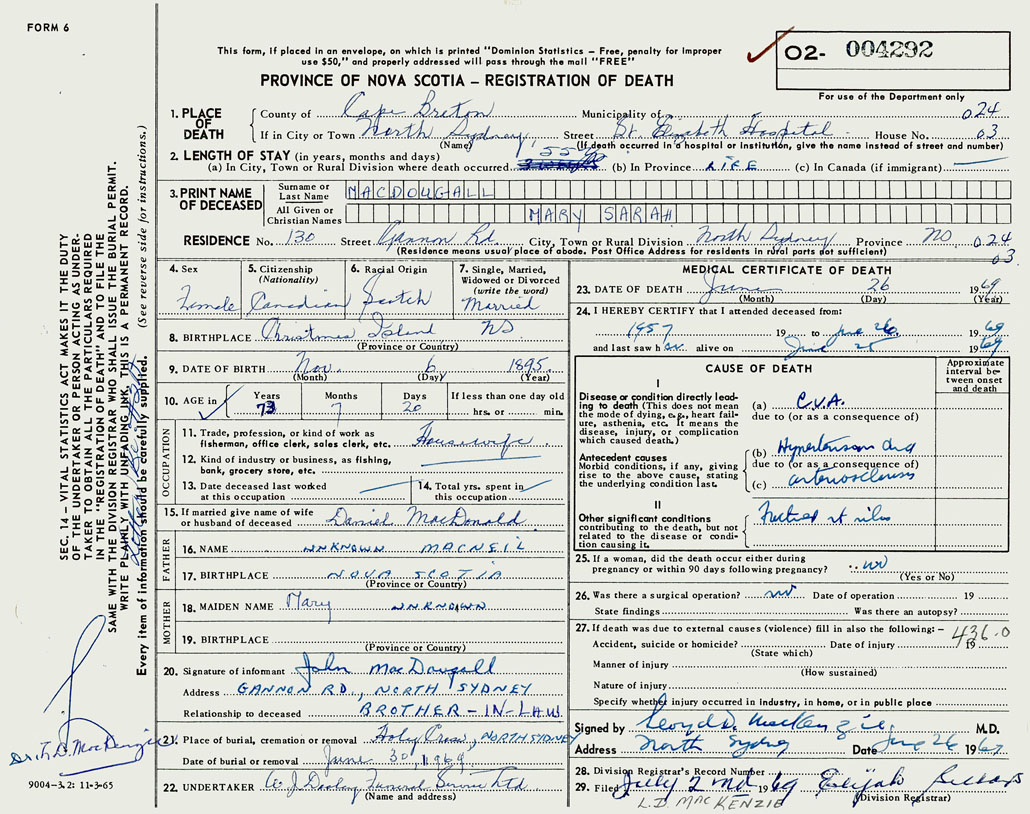 FORM 6
This form, if placed in an envelope, on which is printed "Dominion Statistics – Free, penalty for improper
use $50," and properly addressed will pass through the mail "FREE"
PROVINCE OF NOVA SCOTIA – REGISTRATION OF DEATH
O2- 004292
For use of the Department only
1. PLACE OF DEATH
County of Cape Breton Municipality of 024
If in City or Town North Sydney Street St. Elizabeth Hospital House No. 03
(Name) (If death occurred in a hospital or institution, give the name instead of street and number)
2. LENGTH OF STAY (in years, months and days)
(a) In City, Town or Rural Division where death occurred 55 (b) In Province LIFE (c) In Canada (if immigrant)
3. PRINT NAME OF DECEASED
Surname or Last Name MACDOUGALL
All Given or Christian Names MARY SARAH
RESIDENCE No. 130 Street Gannon Rd. City, Town or Rural Division North Sydney Province NS 024
(Residence means usual place of abode. Post Office Address for residents in rural parts not sufficient) 03.
4. Sex Female
5. Citizenship (Nationality) Canadian
6. Racial Origin Scotch
7. Single, Married, Widowed or Divorced (write the word) Married
8. BIRTHPLACE Christmas Island NS
(Province or Country)
9. DATE OF BIRTH Nov. 6 1895
(Month) (Day) (Year)
10. AGE in Years 73 Months 7 Days 20 If less than one day old
hrs. or min.
OCCUPATION
11. Trade, profession, or kind of work as fisherman, office clerk, sales clerk, etc. Housewife
12. Kind of industry or business, as fishing, bank, grocery store, etc.
13. Date deceased last worked at this occupation
14. Total yrs. spent in this occupation
15. If married give name of wife or husband of deceased Daniel MacDonald
FATHER
16. NAME UNKNOWN MACNEIL
17. BIRTHPLACE NOVA SCOTIA
(Province or Country)
MOTHER
18. MAIDEN NAME Mary UNKNOWN
19. BIRTHPLACE
(Province or Country)
20. Signature of informant John MacDougall
Address GANNON RD., NORTH SYDNEY
Relationship to deceased BROTHER-IN-LAW
21. Place of burial, cremation or removal Holy Cross, NORTH SYDNEY
Date of burial or removal June 30, 1969
22. UNDERTAKER W J Dooley Funeral Service Ltd
(Name and address)
MEDICAL CERTIFICATE OF DEATH
23. DATE OF DEATH June 26 1969
(Month) (Day) (Year)
24. I HEREBY CERTIFY that I attended deceased from:
1957 19 to June 26 1969
and last saw her alive on June 25 1969
CAUSE OF DEATH
Approximate interval between onset and death
I
Disease or condition directly leading to death (This does not mean the mode of dying, e.g., heart failure, asthenia, etc. It means the disease, injury, or complication which caused death.)
(a) C.V.A.
due to (or as a consequence of)
Antecedent causes
Morbid conditions, if any, giving rise to the above cause, stating the underlying condition last.
(b) Hypertension and
due to (or as a consequence of)
(c) arteriosclerosis
II
Other significant conditions contributing to the death, but not related to the disease or condition causing it.
25. If a woman, did the death occur either during
pregnancy or within 90 days following pregnancy? no
(Yes or No)
26. Was there a surgical operation? no Date of operation 19
State findings Was there an autopsy?
27. If death was due to external causes (violence) fill in also the following: – 436.0
Accident, suicide or homicide? Date of injury 19
(State which)
Manner of injury
(How sustained)
Nature of injury
Specify whether injury occurred in industry, in home, or in public place
Signed by Lloyd D. MacKenzie M.D.
Address North Sydney Date June 26 1969
28. Division Registrar's Record Number
29. Filed July 2nd 1969 Elijah
(Division Registrar)
L.D. MACKENZIE
SEC. 14 – VITAL STATISTICS ACT MAKES IT THE DUTY
OF THE UNDERTAKER OR PERSON ACTING AS UNDER-
TAKER TO OBTAIN ALL THE PARTICULARS REQUIRED
IN THE "REGISTRATION OF DEATH" AND TO FILE THE
SAME WITH THE DIVISION REGISTRAR WHO SHALL ISSUE THE BURIAL PERMIT.
WRITE PLAINLY WITH UNFADING INK. THIS IS A PERMANENT RECORD.
Every item of information should be carefully supplied. (See reverse side for instructions.)
Dr. L. D. MacKenzie
9004-3.2: 11-3-65